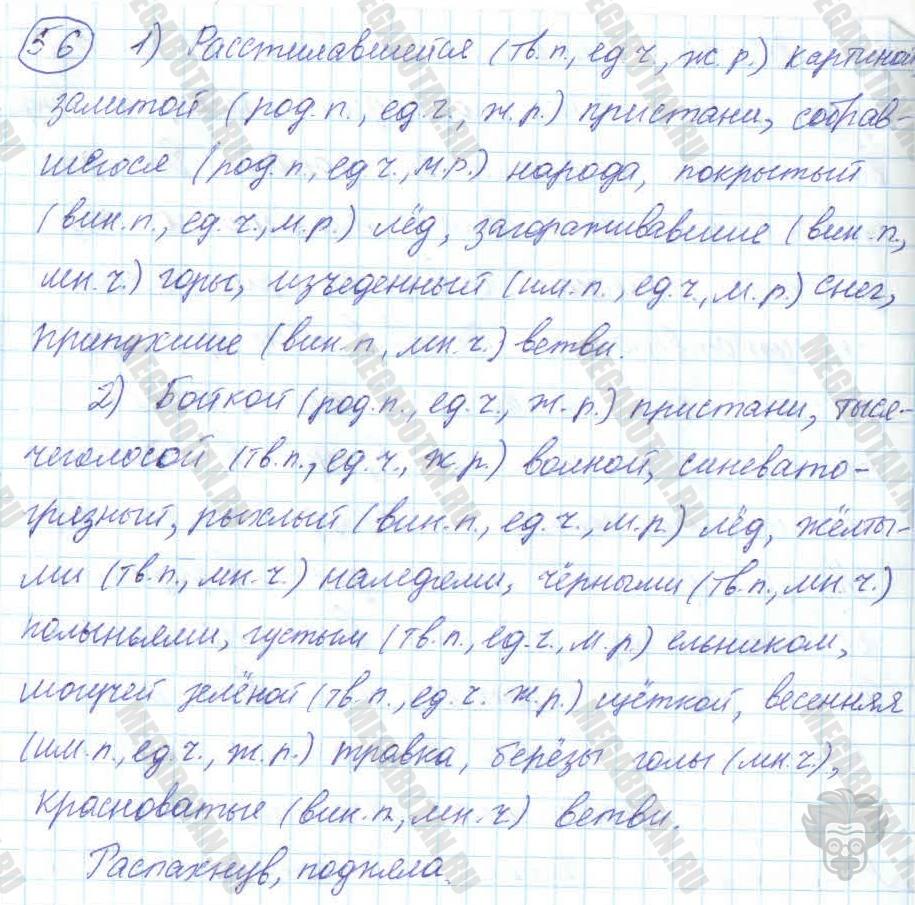 56 1) Расстилавшейся (тв.п., ед.ч., ж.р.) картиной
залитой (род.п., ед.ч., ж.р.) пристани, собрав-
шегося (род.п., ед.ч., м.р.) народа, покрытый
(вин.п., ед.ч., м.р.) лёд, загораживавшие (вин.п.,
мн.ч.) горы, изъеденный (им.п., ед.ч., м.р.) снег,
припухшие (вин.п., мн.ч.) ветви.
2) Бойкой (род.п., ед.ч., ж.р.) пристани, тыся-
чеголосой (тв.п., ед.ч., ж.р.) волной, синевато-
грязный, рыхлый (вин.п., ед.ч., м.р.) лёд, жёлты-
ми (тв.п., мн.ч.) наледями, чёрными (тв.п., мн.ч.)
полыньями, густым (тв.п., ед.ч., м.р.) ельником,
могучей зелёной (тв.п., ед.ч. ж.р.) щёткой, весенняя
(им.п., ед.ч., ж.р.) травка, берёзы голы (мн.ч),
красноватые (вин.п., мн.ч) ветви.
Распахнув, подняла.
MEGABOTAN.RU